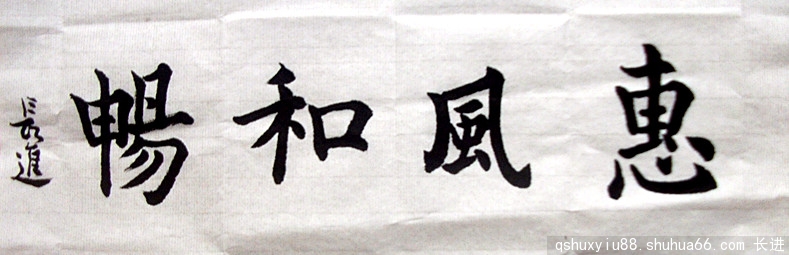 惠風和暢
長進
qshuxyiu88.shuhua66.com 长进